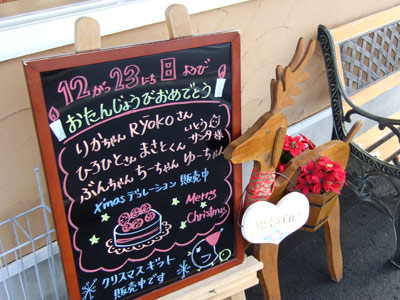 12がつ23にち日ようび
おたんじょうびおめでとう
りかちゃん Ryokoさん
ひろひとさん まさとくん サンタ様
ぶんちゃん ちーちゃん ゆーちゃん
Xmasデコレーション 販売中
Merry
Christmas
クリスマスギフト
販売中です